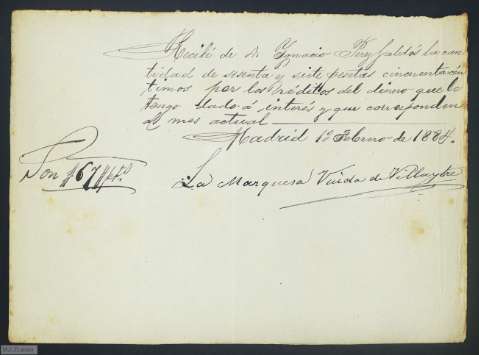 Recibí de D. Ignacio Perez Galdós la can
tidad de sesenta y siete pesetas cincuenta cén
timos por los réditos del dinero que le
tengo dado á interés y que corresponden
al mes actual
Madrid 1º Febrero de 1884.
Son #67#
La Marquesa Viuda de Villaytre